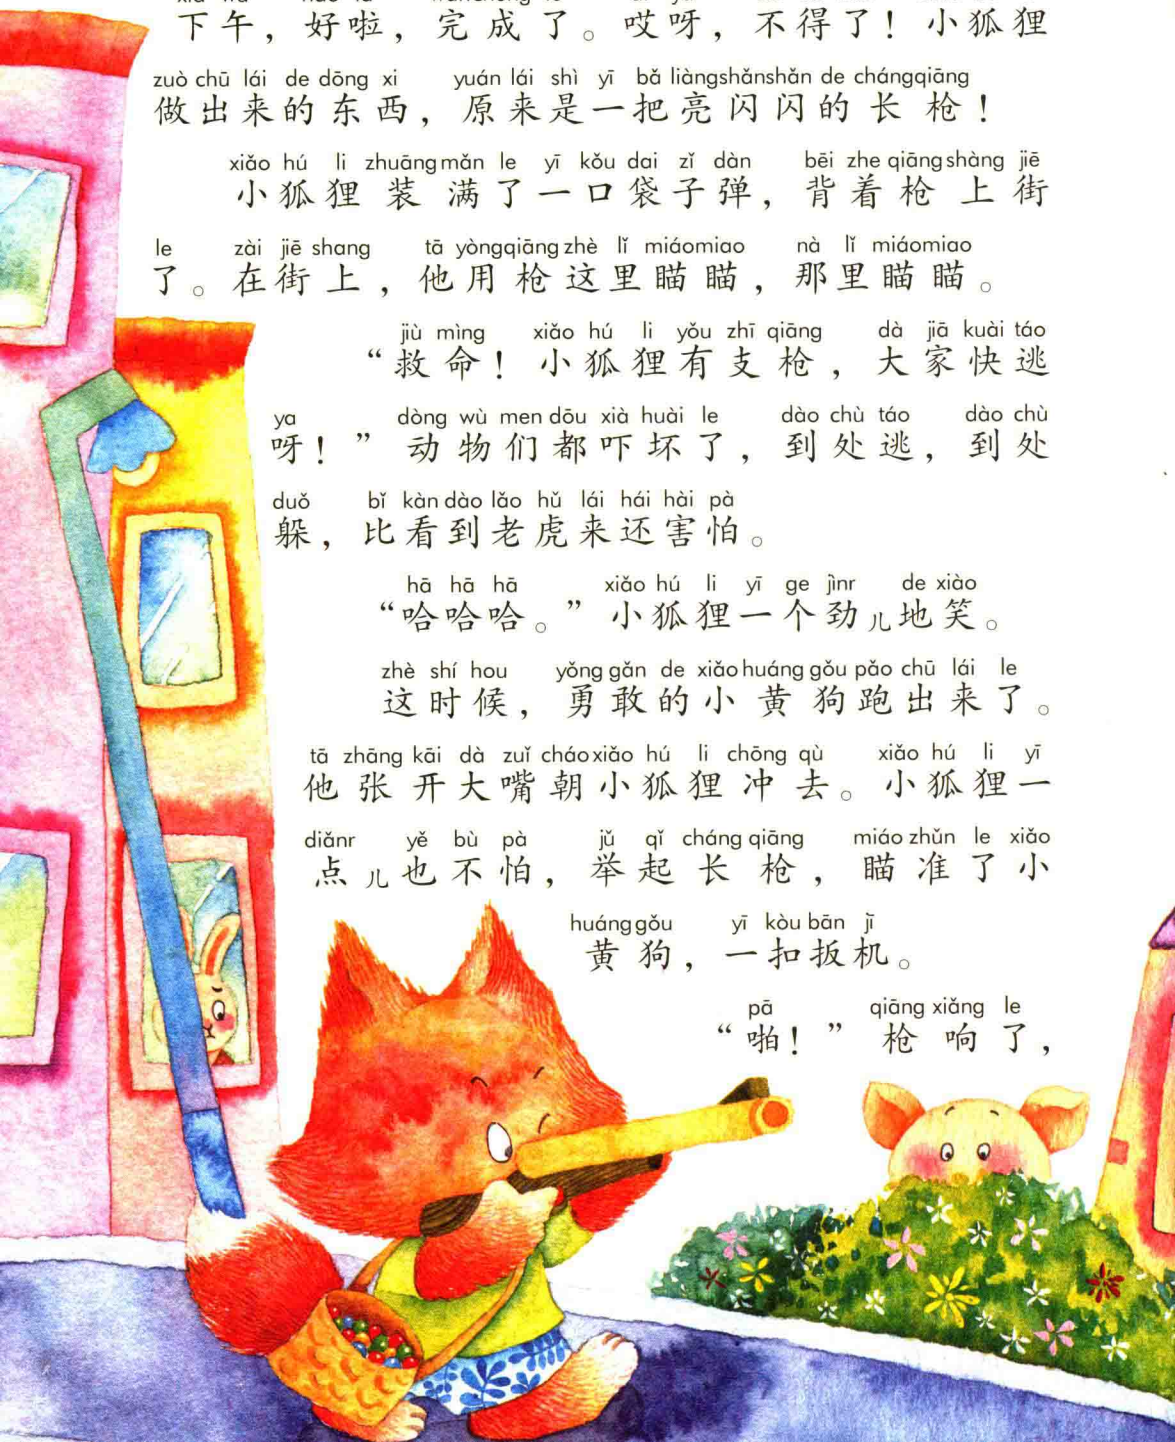 下午，好啦，完成了。哎呀，不得了！小狐狸
zuò chū lái de dōng xi yuán lái shì yī bǎ liàngshǎnshǎn de chángqiāng
做出来的东西，原来是一把亮闪闪的长枪！
xiǎo hú li zhuāng mǎn le yī kǒu dai zǐ dàn bēi zhe qiāng shàng jiē
小狐狸装满了一口袋子弹，背着枪上街
le zài jiē shang tā yòngqiāng zhè lǐ miáomiao nà lǐ miáomiao
了。在街上，他用枪这里瞄瞄，那里瞄瞄。
jiù mìng xiǎo hú li yǒu zhī qiāng dà jiā kuài táo
“救命！小狐狸有支枪，大家快逃
ya dòng wù men dōu xià huài le dào chù táo dào chù
呀！”动物们都吓坏了，到处逃，到处
duǒ bǐ kàn dào lǎo hǔ lái hái hài pà
躲，比看到老虎来还害怕。
hā hā hā xiǎo hú li yī ge jìnr de xiào
“哈哈哈。”小狐狸一个劲儿地笑。
zhè shí hou yǒng gǎn de xiǎo huáng gǒu pǎo chū lái le
这时候，勇敢的小黄狗跑出来了。
tā zhāng kāi dà zuǐ cháo xiǎo hú li chōng qù xiǎo hú li yī
他张开大嘴朝小狐狸冲去。小狐狸一
diǎnr yě bù pà jǔ qǐ cháng qiāng miáo zhǔn le xiǎo
点儿也不怕，举起长枪，瞄准了小
huáng gǒu yī kòu bān jī
黄狗，一扣扳机。
pā qiāng xiǎng le
“啪！”枪响了，